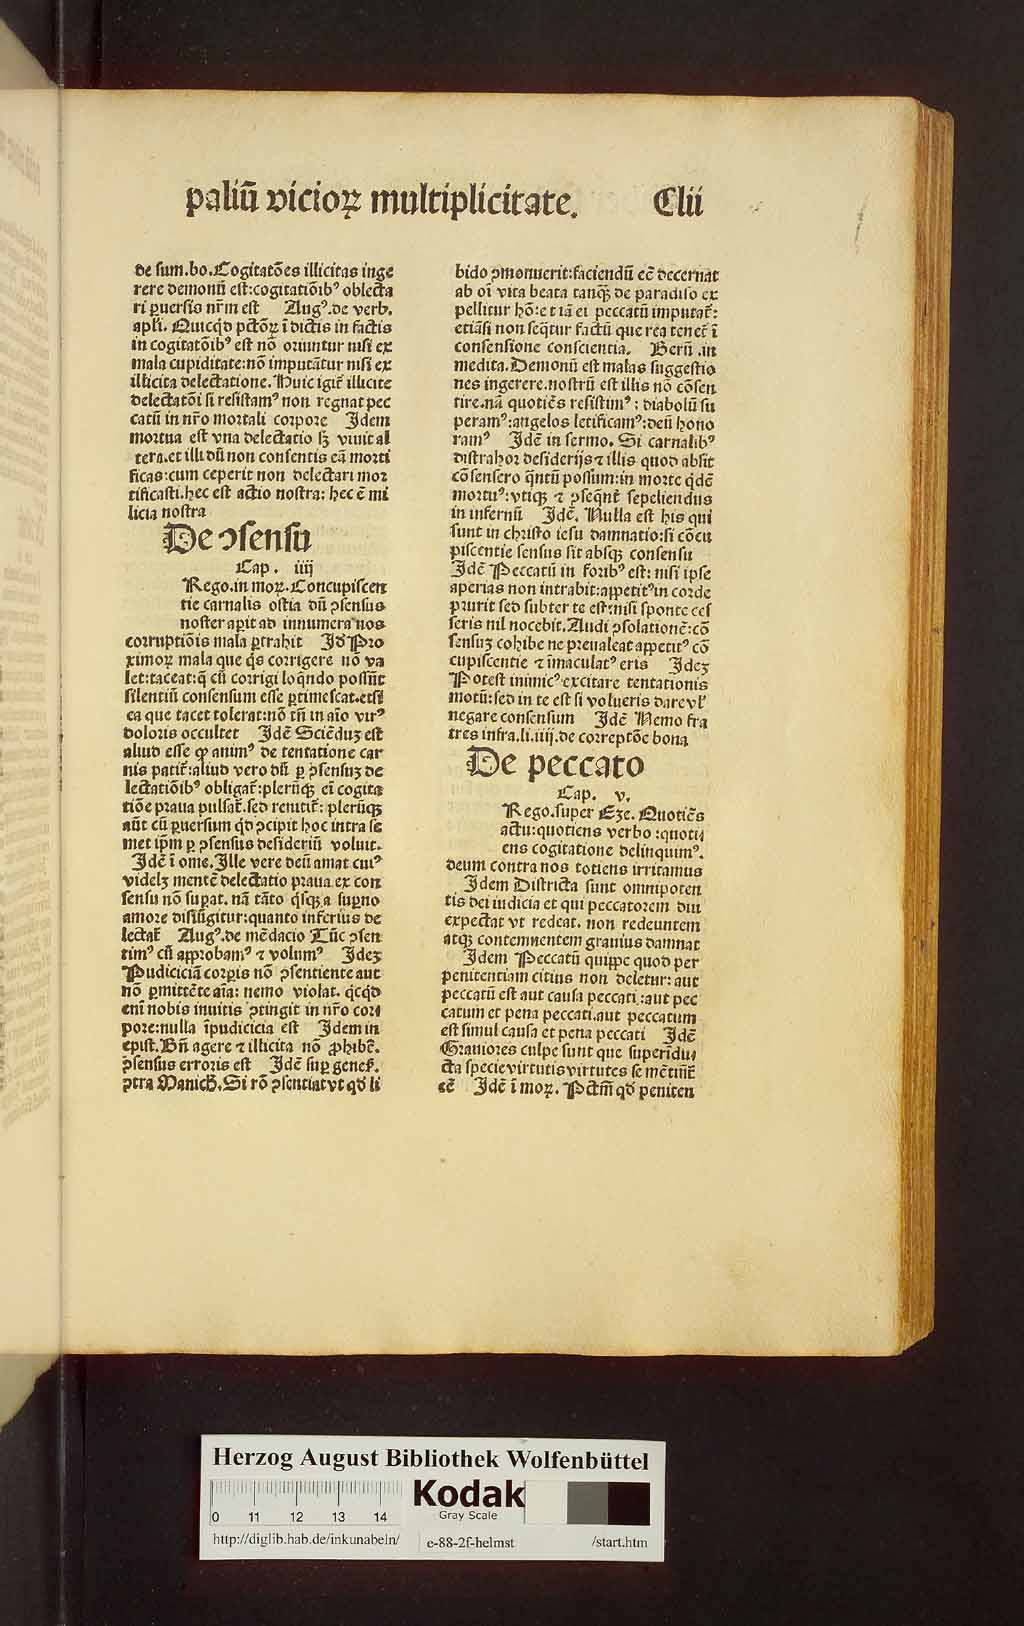 paliū vicioꝝ multiplicitate. Clii
de sum.bo.Cogitatōes illicitas inge
rere demonū est:cogitatiōibꝰ oblecta
ri ꝑuersis nr̄m est Augꝰ.de verb.
apl̓i. Quicqd̓ pctōꝝ ī dictis in factis
in cogitatōibꝰ est nō oriuntur nisi ex
mala cupiditate:nō imputātur nisi ex
illicita delectatione. Huic igit̃ illicite
delectatōi si resistamꝰ non regnat pec
catū in nr̄o mortali corpore Idem
mortua est vna delectatio sꝫ viuit al
tera.et illi dū non consentis eā morti
ficas:cum ceperit non delectari mor
tificasti.hec est actio nostra: hec ē mi
licia nostra
De ꝯsensu
Cap. iiij
Rego.in moꝝ.Concupiscen
tie carnalis ostia dū ꝯsensus
noster aꝑit ad innumera nos
corruptiōis mala ꝑtrahit Id̓ Pro
ximoꝝ mala que q̄s corrigere nō va
let:taceat:q̄ cū corrigi loq̄ndo possūt
silentiū consensum esse ꝑtimescat.etsi
ea que tacet tolerat:nō tn̄ in aīo virꝰ
doloris occultet Idē Sciēduꝫ est
aliud esse ꝙ animꝰ de tentatione car
nis patit̃:aliud vero dū ꝑ ꝯsensuꝫ de
lectatiōibꝰ obligat̃:plerūqꝫ eī cogita
tiōe praua pulsat̃.sed renitit̃: plerūqꝫ
aūt cū ꝑuersum qd̓ ꝯcipit hoc intra se
met ip̄m ꝑ ꝯsensus desideriū voluit.
Idē ī ome. Ille vere deū amat cuiꝰ
videlꝫ mentē delectatio praua ex con
sensu nō suꝑat. nā tāto q̄sqꝫ a suꝑno
amore disiūgitur:quanto inferius de
lectat̃ Augꝰ.de mēdacio Tūc ꝯsen
timꝰ cū approbamꝰ ⁊ volumꝰ Ideꝫ
Pudiciciā corꝑis nō ꝯsentiente aut
nō ꝑmittēte aīa: nemo violat. qc̄qd̓
enī nobis inuitis ꝯtingit in nr̄o cor
pore:nulla īpudicicia est Idem in
epist. Bn̄ agere ⁊ illicita nō ꝓhibē.
ꝯsensus erroris est Idē suꝑ genes̓.
ꝯtra Manich̓. Si rō ꝯsentiat vt qd̓ li
bido ꝯmonuerit:faciendū eē decernat
ab oī vita beata tanqꝫ de paradiso ex
pellitur hō:et iā ei peccatū imputat̃:
etiāsi non seq̄tur factū que rea tenet̃ ī
consensione conscientia. Berń .in
medita. Demonū est malas suggestio
nes ingerere.nostrū est illis nō cōsen
tire.nā quotiēs resistimꝰ: diabolū su
peramꝰ:angelos letificamꝰ:deū hono
ramꝰ Idē in sermo. Si carnalibꝰ
distrahor desiderijs ⁊ illis quod absit
cōsensero q̄ntū possum:in morte q̄dē
mortuꝰ:vtiqꝫ ⁊ ꝯseqn̄t̃ sepeliendus
in infernū Idē. Nulla est his qui
sunt in christo iesu damnatio:si cōcu
piscentie sensus sit absqꝫ consensu
Idē Peccatū in foribꝰ est: nisi ipse
aperias non intrabit:appetitꝰ in corde
prurit sed subter te est:nisi sponte ces
seris nil nocebit. Audi ꝯsolationē:cō
sensuꝫ cohibe ne preualeat appetitꝰ cō
cupiscentie ⁊ īmaculatꝰ eris Ideꝫ
Potest inimicꝰ excitare tentationis
motū:sed in te est si volueris dare vl̓
negare consensum Idē Nemo fra
tres infra.li.iiij.de correptōe bona
De peccato
Cap. v.
Rego.super Eze. Quotiēs
actu:quotiens verbo :quoti
ens cogitatione delinquimꝰ.
deum contra nos totiens irritamus
Idem Districta sunt omnipoten
tis dei iudicia et qui peccatorem diu
expectat vt redeat. non redeuntem
atqꝫ contemnentem grauius damnat
Idem Peccatū quippe quod per
penitentiam citius non deletur: aut
peccatū est aut causa peccati :aut pec
catum et pena peccati.aut peccatum
est simul causa et pena peccati Idē
Grauiores culpe sunt que superīdu
cta specie virtutis virtutes se mētiūt̃
eē Idē ī moꝝ. Pctm̄ qd̓ peniten
Herzog August Bibliothek Wolfenbüttel
0 11 12 13 14
Kodak
Gray Scale
http://diglib.hab.de/inkunabeln/ e-88-2f-helmst /start.htm